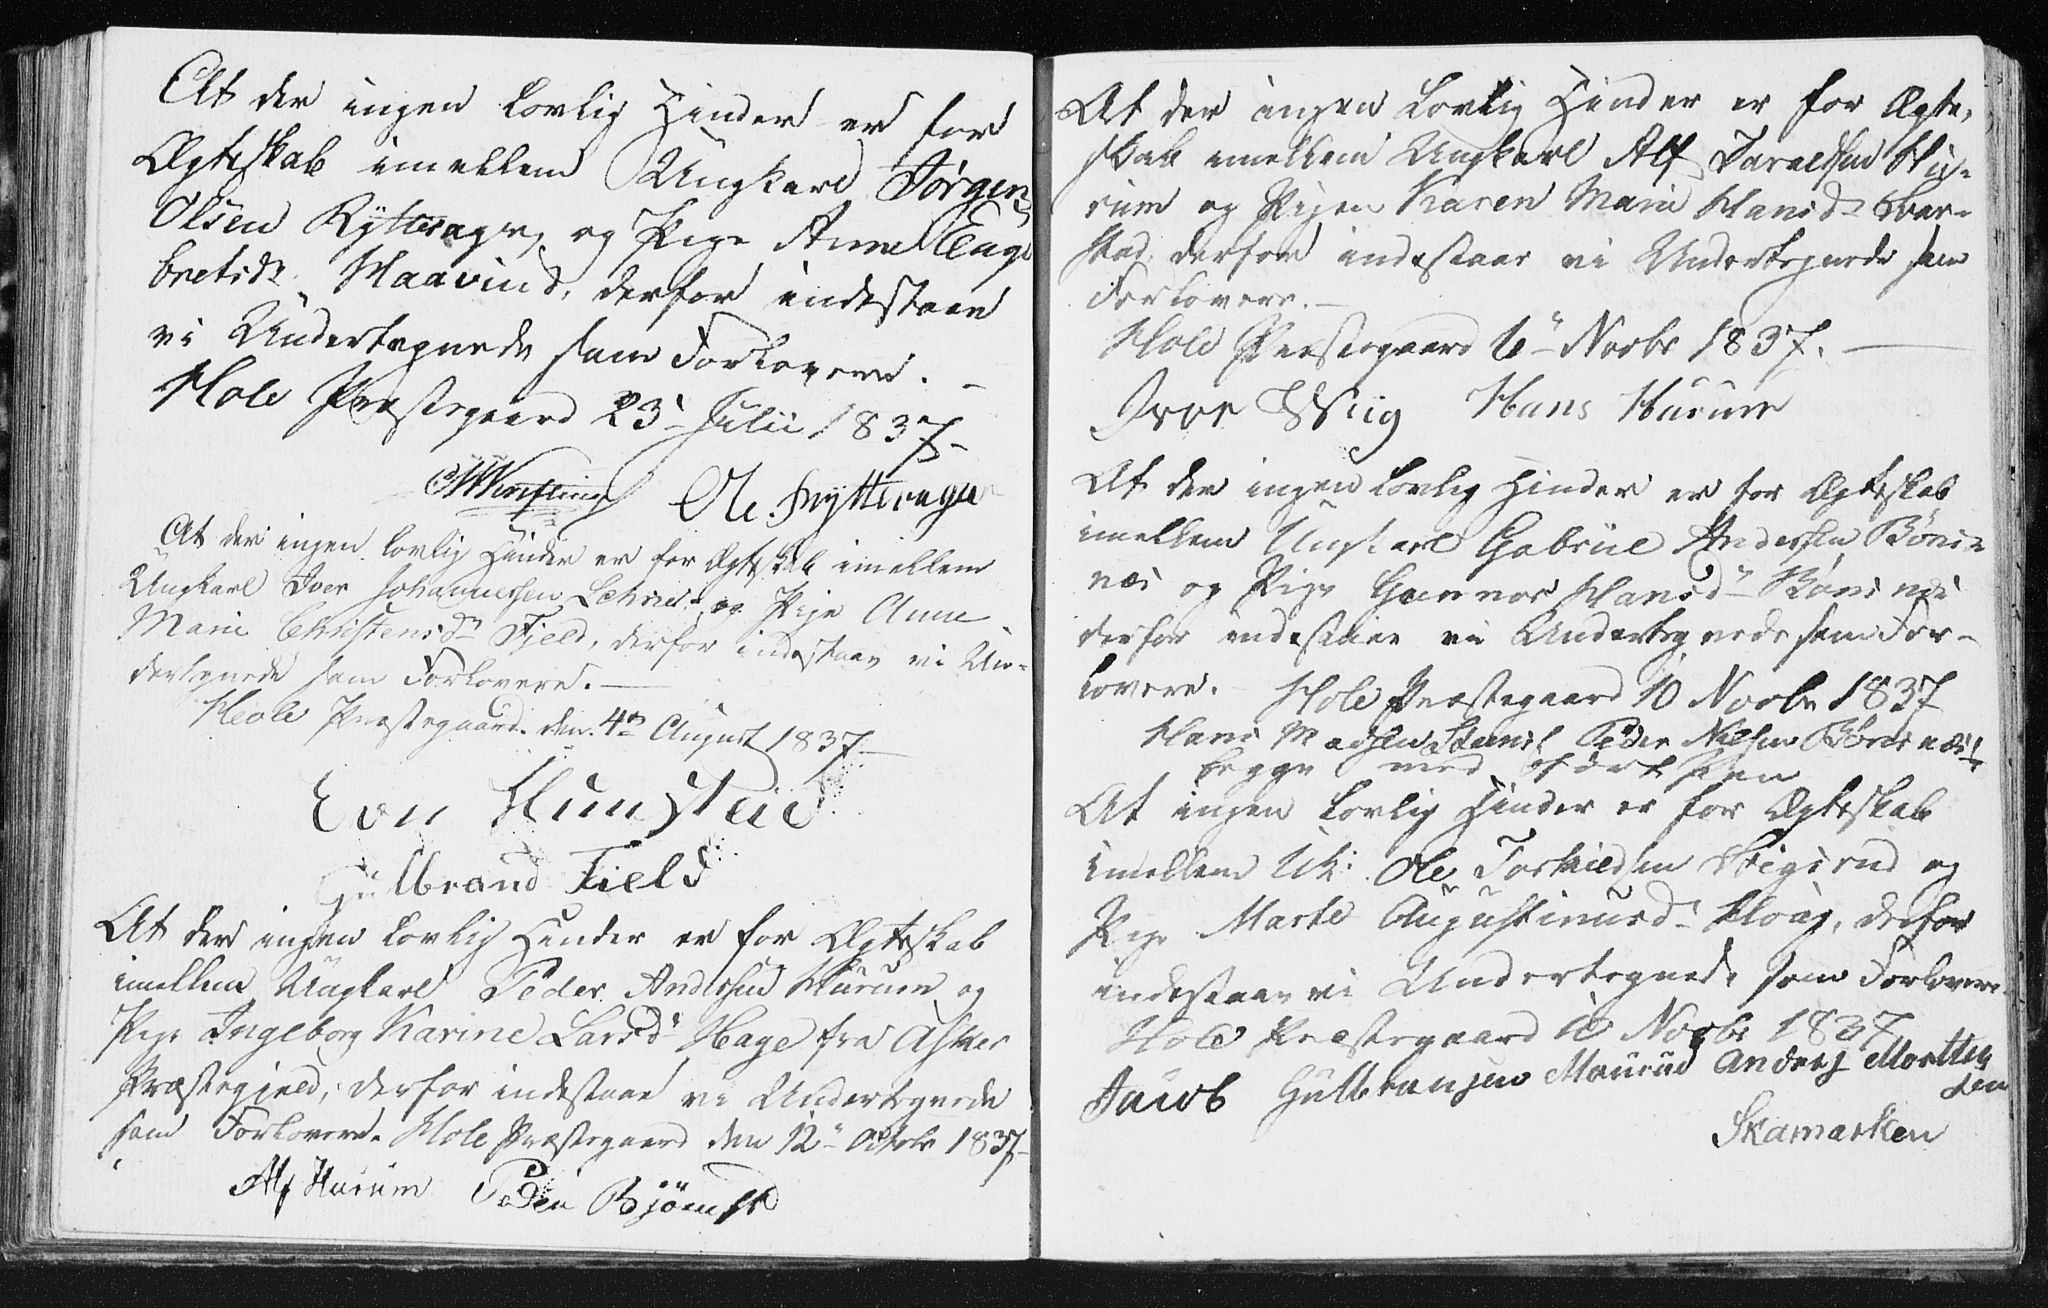 At der ingen lovlig Hinder er for
Ægteskab imellem Ungkarl Jørgen
Olsen Rytterager og Pige Anne Enge
bretsdr Haavind, derfor indestaae
vi Undertegnede som Forlovere.
Hole Præstegaard 23 Julii 1837
Ole Rytterager
At der ingen lovlig Hinder er for Ægteskab imellem
Ungkarl Iver Johannessen og Pige Anne
Marie Christensdr Fjeld, derfor indestaae vi Un-
dertegnede som Forlovere.
Hole Præstegaard den 4de August 1837
Even Hunstad
Gulbrand Field
At der ingen lovlig Hinder er for Ægteskab
imellem Ungkarl Peder Andersen Hurum og
Pige Ingeborg Karine Larsd Hage fra Asker
Præstegjeld, derfor indestaae vi Undertegnede
som Forlovere. Hole Præstegaard den 12 Octobr 1837
Alf Hurum Peder
At der ingen lovlig Hinder er for Ægte-
skab imellem Ungkarl Alf Taraldsen Hu-
rum og Pigen Karen Marie Hansd
stad, derfor indestaae vi Undertegnede som
Forlovere.
Hole Præstegaard Novbr 1837.
Iver Wiig Hans Hurum
At der ingen lovlig Hinder er for Ægteskab
imellem Ungkarl Gabriel Andersen Bøns-
næs og Pige Gunnor Hansd Bønsnæs
derfor indestaae vi Undertegnede som For-
lovere. Hole Præstegaard 10 Novbr 1837
Hans Madsen Peder Nielsen Bønsnæs
begge med ført Pen
At ingen lovlig Hinder er for Ægteskab
imellem Uk: Ole Torkildsen og
Pige Marte Augustinusd derfor
indestaae vi Undertegnede som Forlovere.
Hole Præstegaard Novbr 1837
Jacob Gulbransen Maurud Anders Mortten
sen
Skamarken